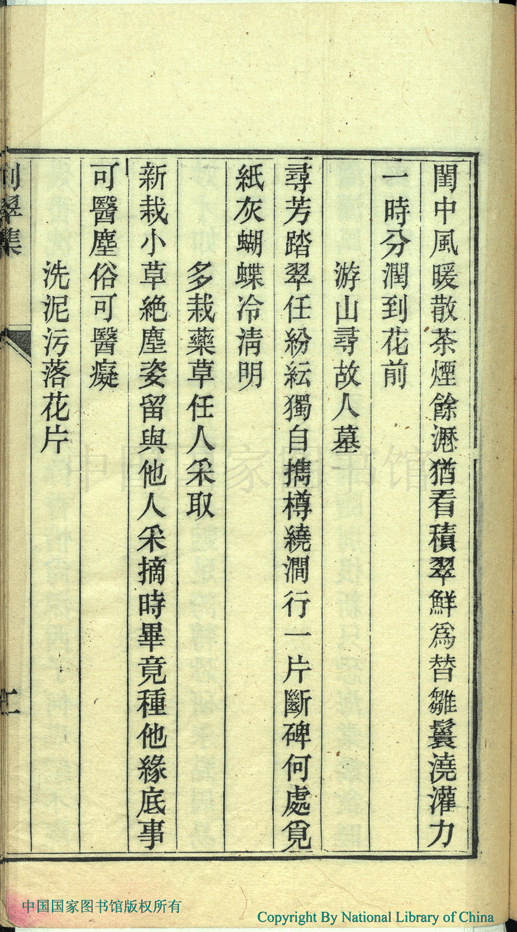 閨中風暖散茶煙餘瀝猶看積翠鮮爲替雛鬟澆灌力
一時分潤到花前
游山尋故人墓
尋芳踏翠任紛紜獨自攜樽繞澗行一片斷碑何處覓
紙灰蝴蝶冷淸明
多栽藥草任人采取
新栽小草絶塵姿留與他人采摘時畢竟種他緣底事
可醫塵俗可醫癡
洗泥污落花片
翠集
中国国家图书馆
中国国家图书馆版权所有
Copyright By National Library of China